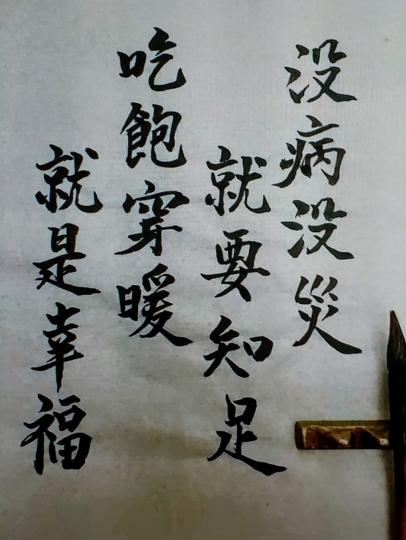 没病没災
就要知足
吃飽穿暖
就是幸福